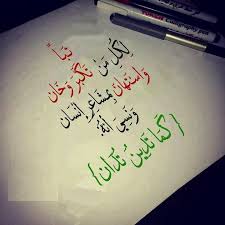 تباً
لِكُلِ مَنْ تَكَبّرَ وَخَان
وَاسْتَهَانَ بِمَشَاعِرِ انْسَان
وَنَسِيَ أنّهُ
{ كَمَا تَدِين تُدَان }